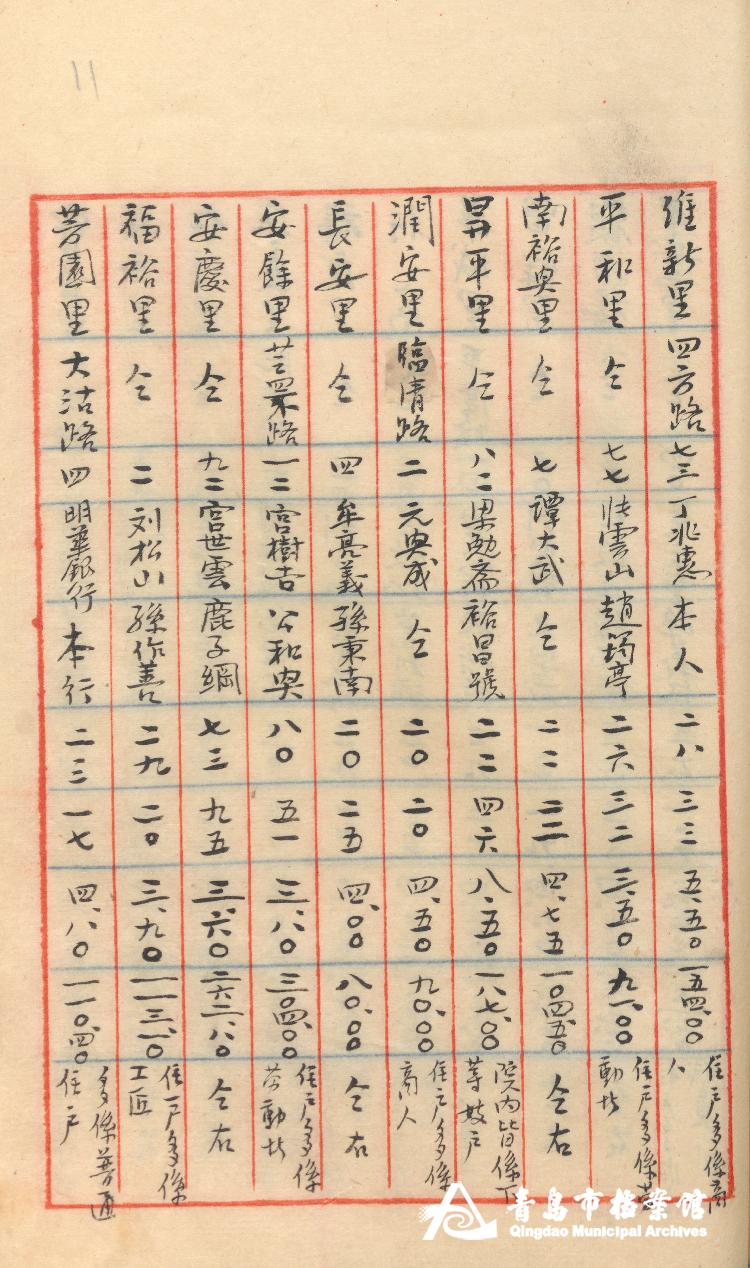 11
維新里 四方路 七三 丁兆惠 本人 二八 三三 五.五〇 一五四.〇〇 住戶多係商人
平和里 仝 七七 張雲山 趙筠亭 二六 三二 三.五〇 九一.〇〇 住戶多係勞動者
南裕興里 仝 七 譚大武 仝 二二 二二 四.七五 一〇四.五〇 仝右
昇平里 仝 八二 梁勉齋 裕昌號 二二 四六 八.五〇 一八七.〇〇 院內皆係下等妓戶
潤安里 臨清路 二 元興成 仝 二〇 二〇 四.五〇 九〇.〇〇 住戶多係商人
長安里 仝 四 牟亮義 孫秉南 二〇 二五 四.〇〇 八〇.〇〇 仝右
安餘里 芝罘路 一二 宮樹吉 公和興 八〇 五一 三.八〇 三〇四.〇〇 住戶多係勞動者
安慶里 仝 九二 宮世雲 鹿子綱 七三 九五 三.六〇 二六二.八〇 仝右
福裕里 仝 二 刘松山 孫作善 二九 二〇 三.九〇 一一三.一〇 住戶多係工匠
芳園里 大沽路 四 明華銀行 本行 二三 一七 四.八〇 一一〇.四〇 多係普通住戶
青島市档案馆
Qingdao Municipal Archives